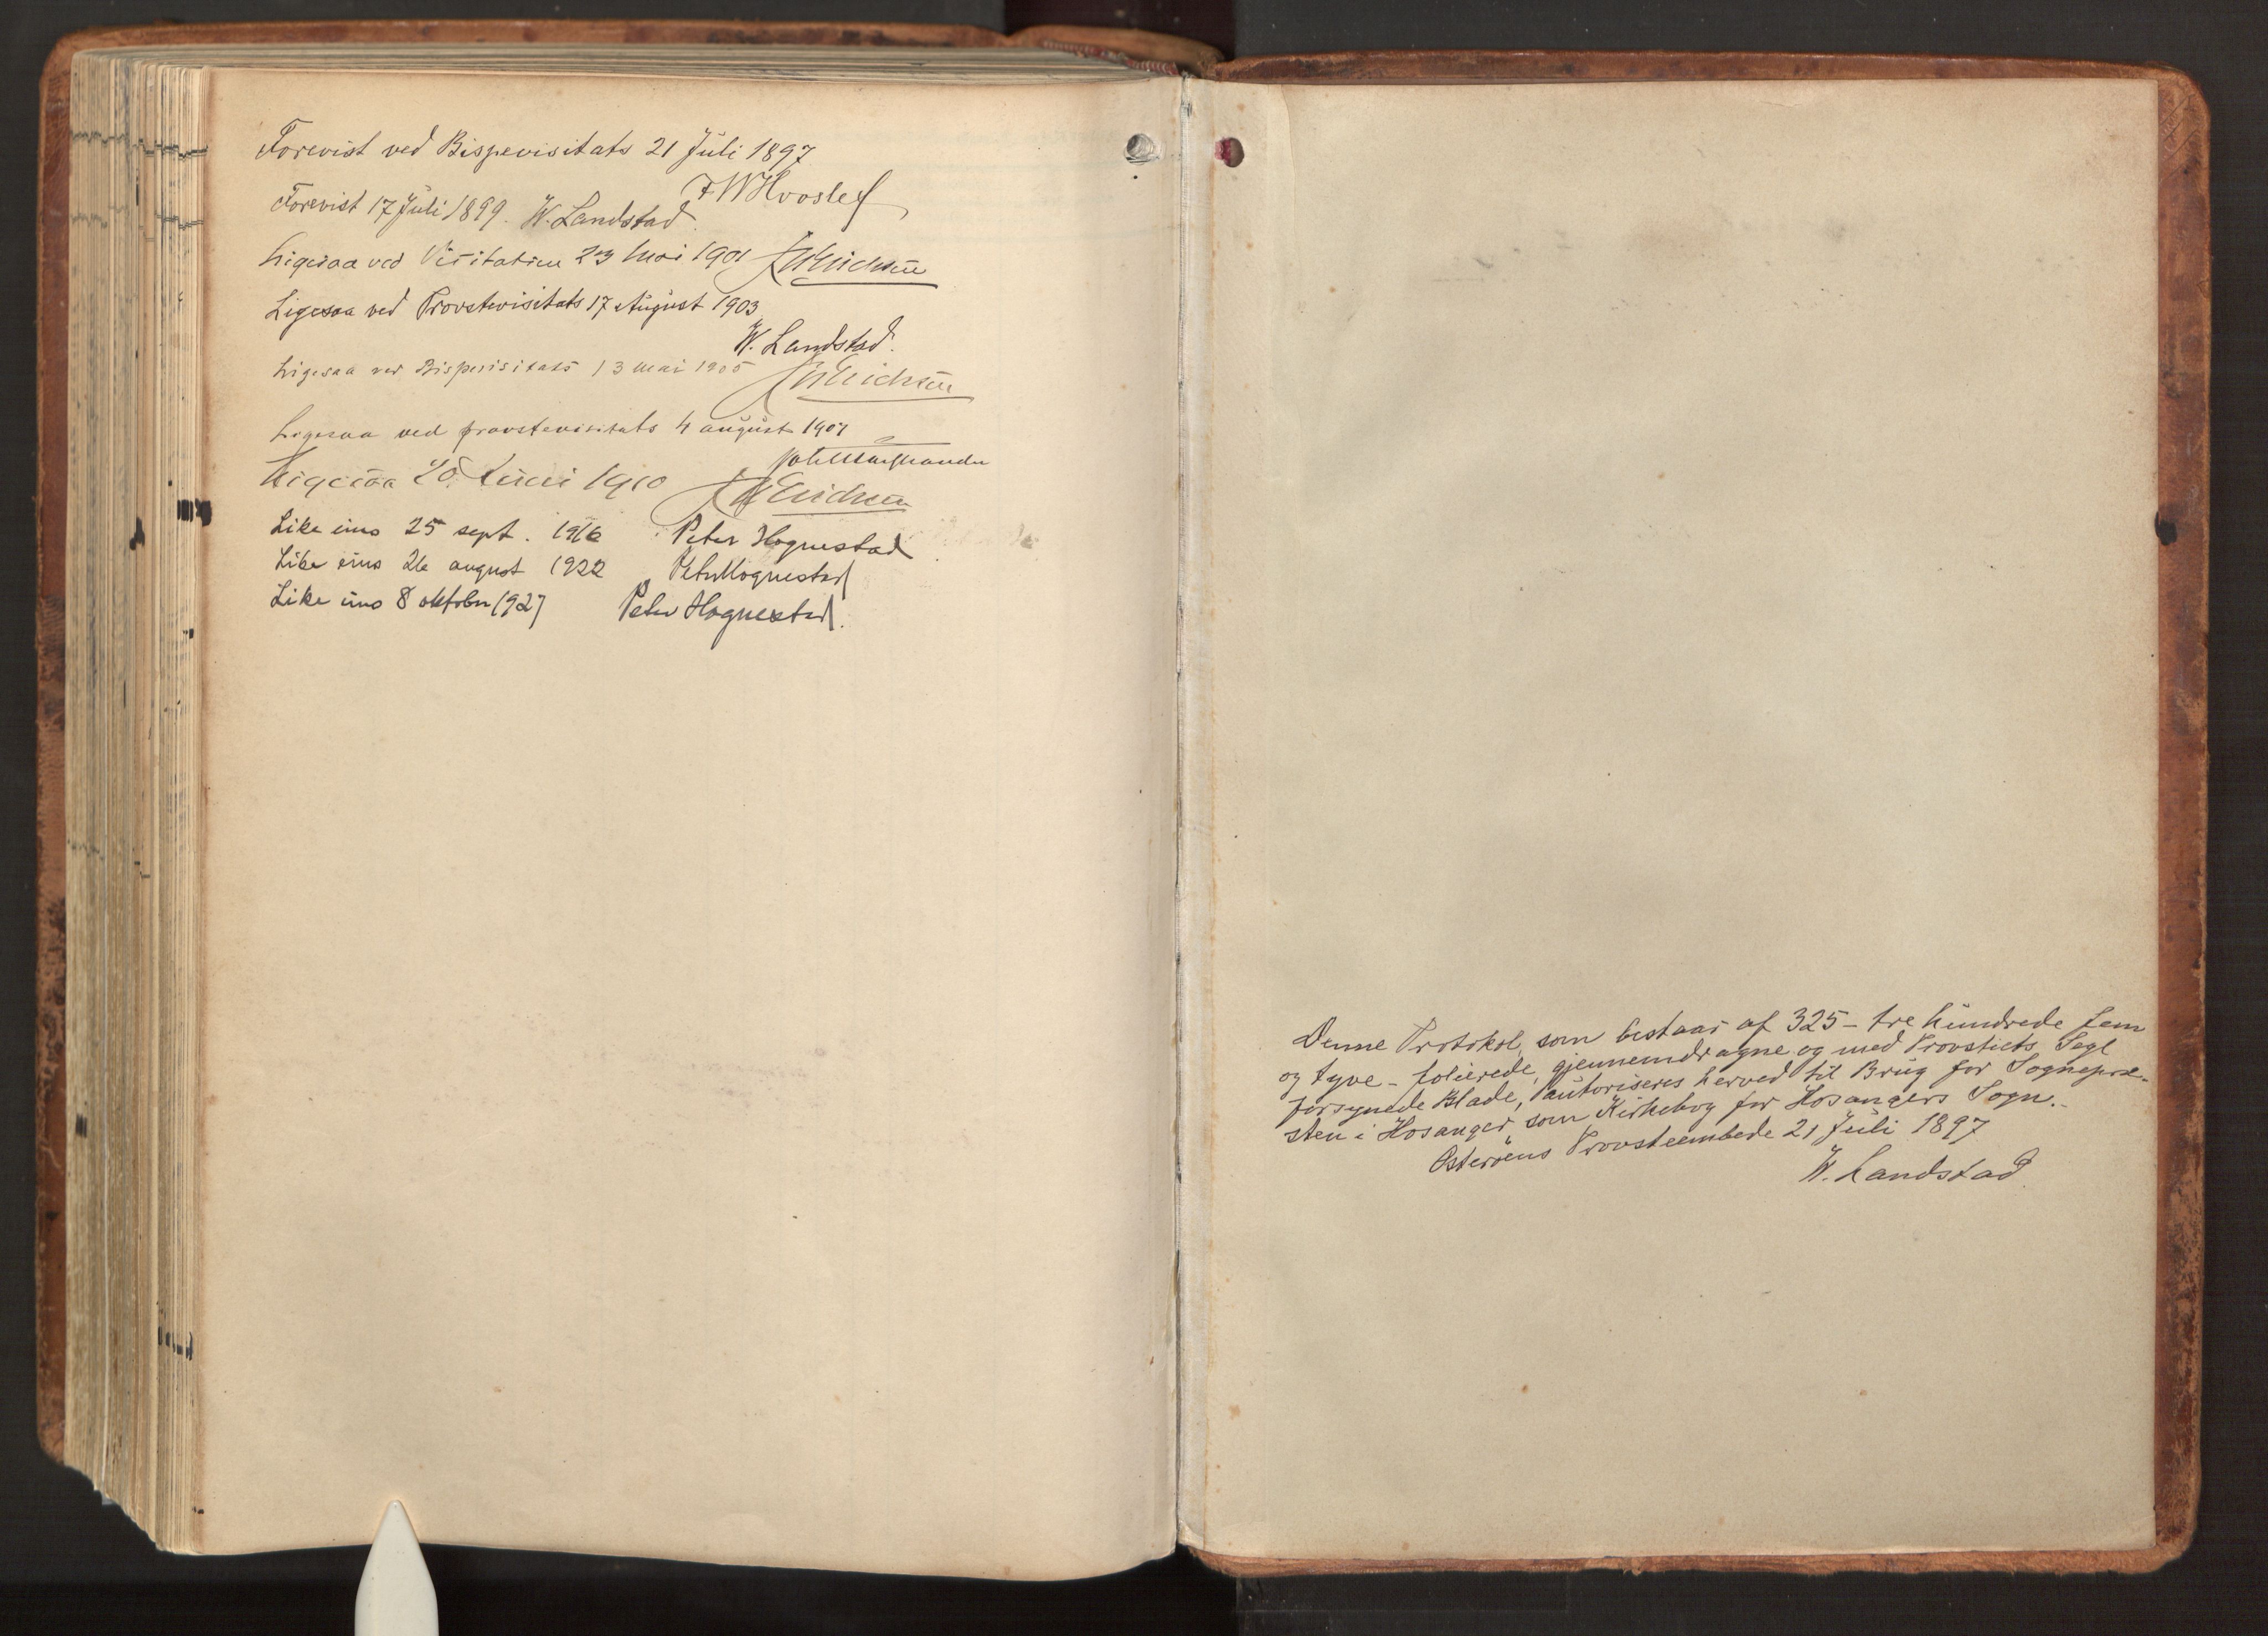 Forevist ved Bispevisitats 21 Juli 1897
FWHvoslef
Forevist 17 Juli 1899. W. Landstad.
Ligesaa ved Visitatien 23 Mai 1901 Erichsen
Ligesaa ved Provstevisitats 17 August 1903
W. Landstad.
Ligesaa ved Bispevisitats 13 Mai 1905 Erichsen
Ligesaa ved provstevisitats 4 august 1907
Ligesaa 20 Juni 1910 Erichsen
Like eins 25 sept. 1916 Peter Hognestad
Like eins 26 august 1922 Peter Hognestad
Like eins 8 oktober 1927 Peter Hognestad.
Denne Protokol, som bestaar af 325 - tre hundrede fem
og tyve - folierede, gjennemdragne og med Provstiets Segl
forsynede Blade, autoriseres herved til Brug for Sognepræ-
sten i Hosanger som Kirkebog for Hosangers Sogn.
Osterøens Provsteembede 21 Juli 1897
W. Landstad.